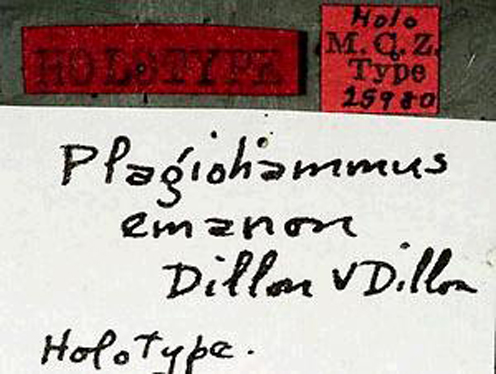 HOLOTYPE
Holo
M.C.Z.
Type
25980
Plagiohammus
emanon
Dillon v Dillon
Holotype.